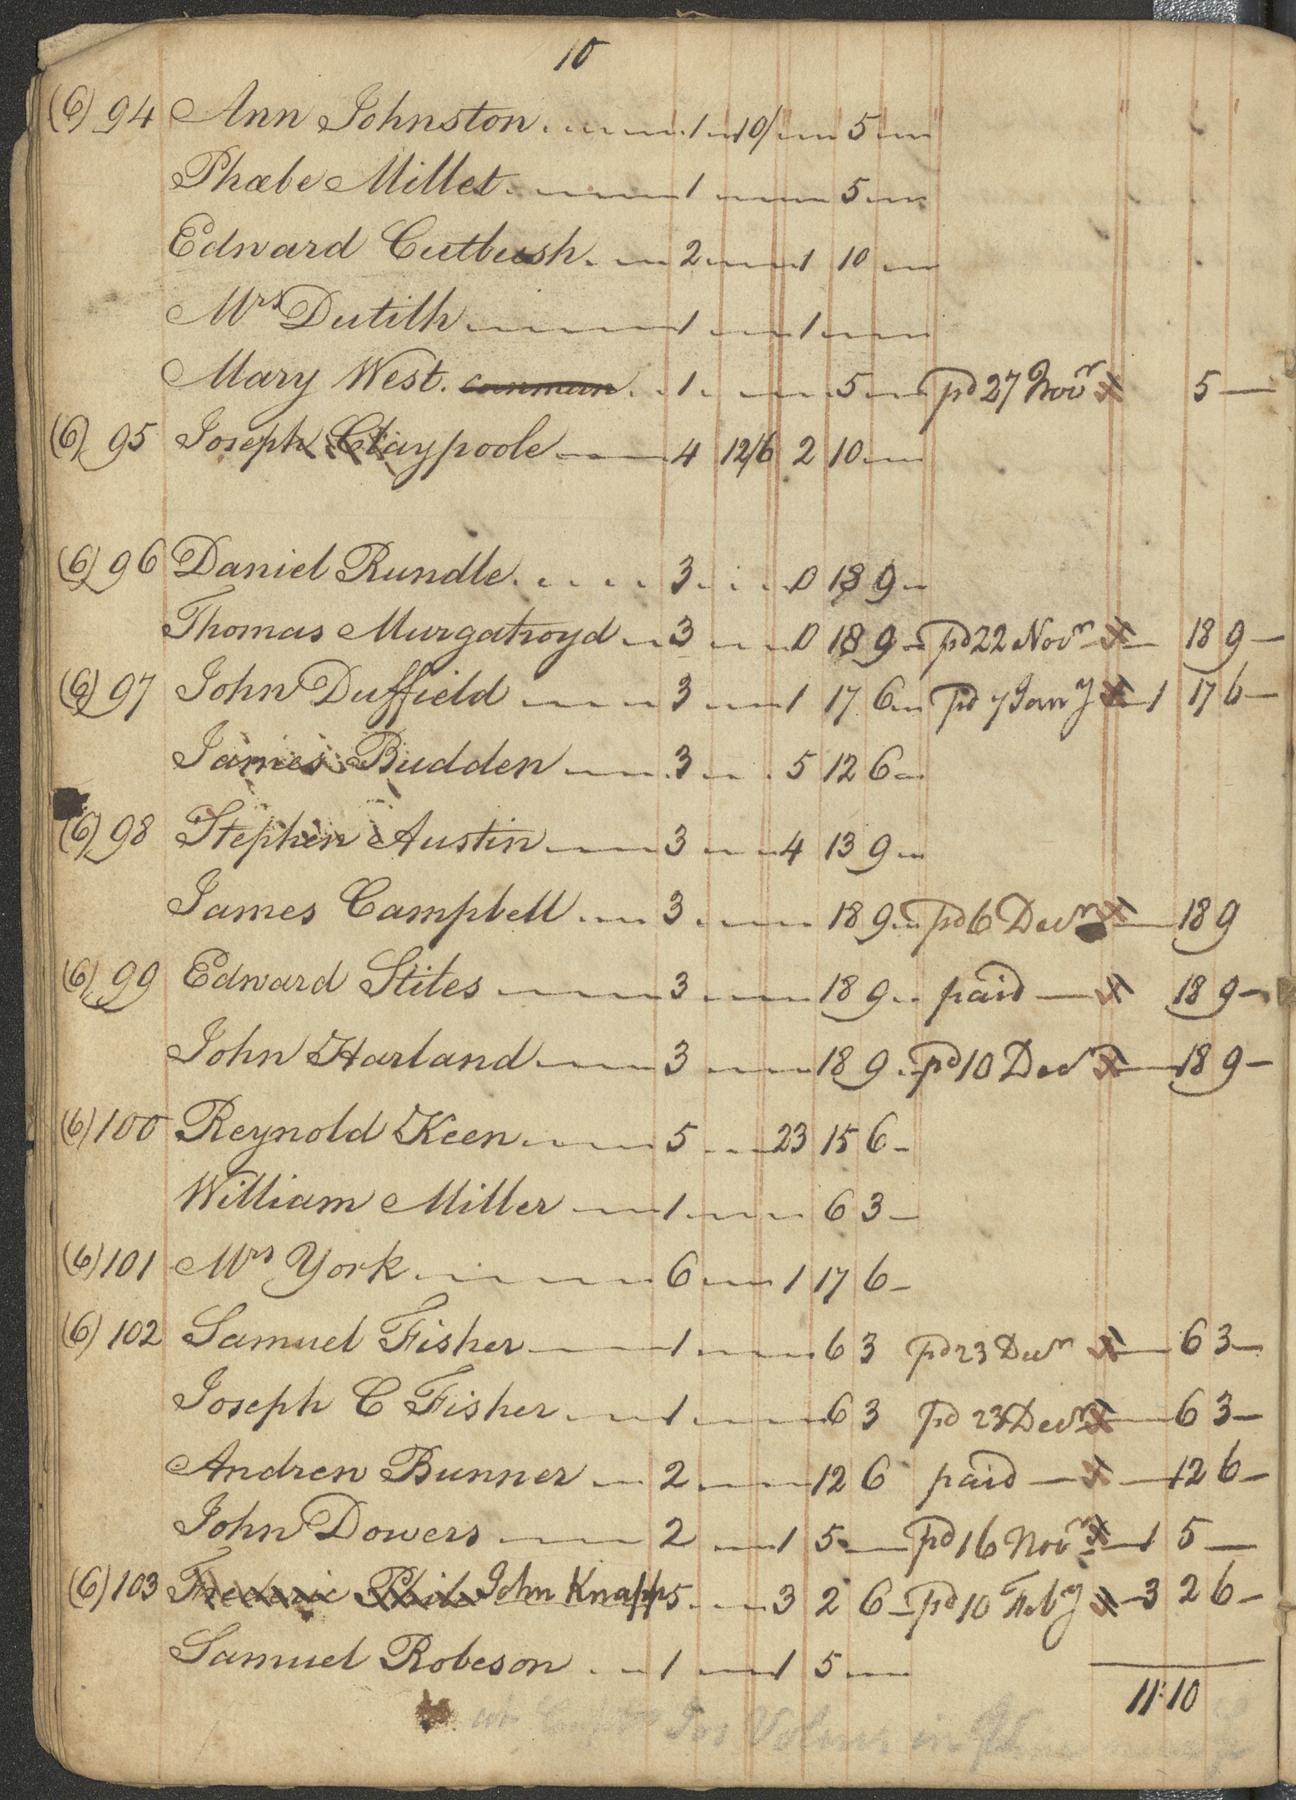 10
(6) 94 Ann Johnston 1 10/ 5
Phæbe Millet 1 5
Edward Cutbush 2 1 10
Mrs Dutilh 1 1
Mary West 1 5 pd 27 Novr 5
(6) 95 Joseph Claypoole 4 12/6 2 10
(6) 96 Daniel Rundle 3 0 18 9
Thomas Murgatroyd 3 0 18 9 pd 22 Novr 18 9
(6) 97 John Duffield 3 1 17 6 pd 7 Jany 1 17 6
James Budden 3 5 12 6
(6) 98 Stephen Austin 3 4 13 9
James Campbell 3 18 9 pd 6 Decr 18 9
(6) 99 Edward Stiles 3 18 9 paid 18 9
John Harland 3 18 9 pd 10 Decr 18 9
(6) 100 Reynold Keen 5 23 15 6
William Miller 1 6 3
(6) 101 Mrs York 6 1 17 6
(6) 102 Samuel Fisher 1 6 3 pd 23 Decr 6 3
Joseph C Fisher 1 6 3 pd 23 Decr 6 3
Andrew Bunner 2 12 6 paid 12 6
John Dowers 2 1 5 pd 16 Novr 1 5
(6) 103 Frederic Phile John Knapp 5 3 2 6 pd 10 Feby 3 2 6
Samuel Robeson 1 1 5
11 10